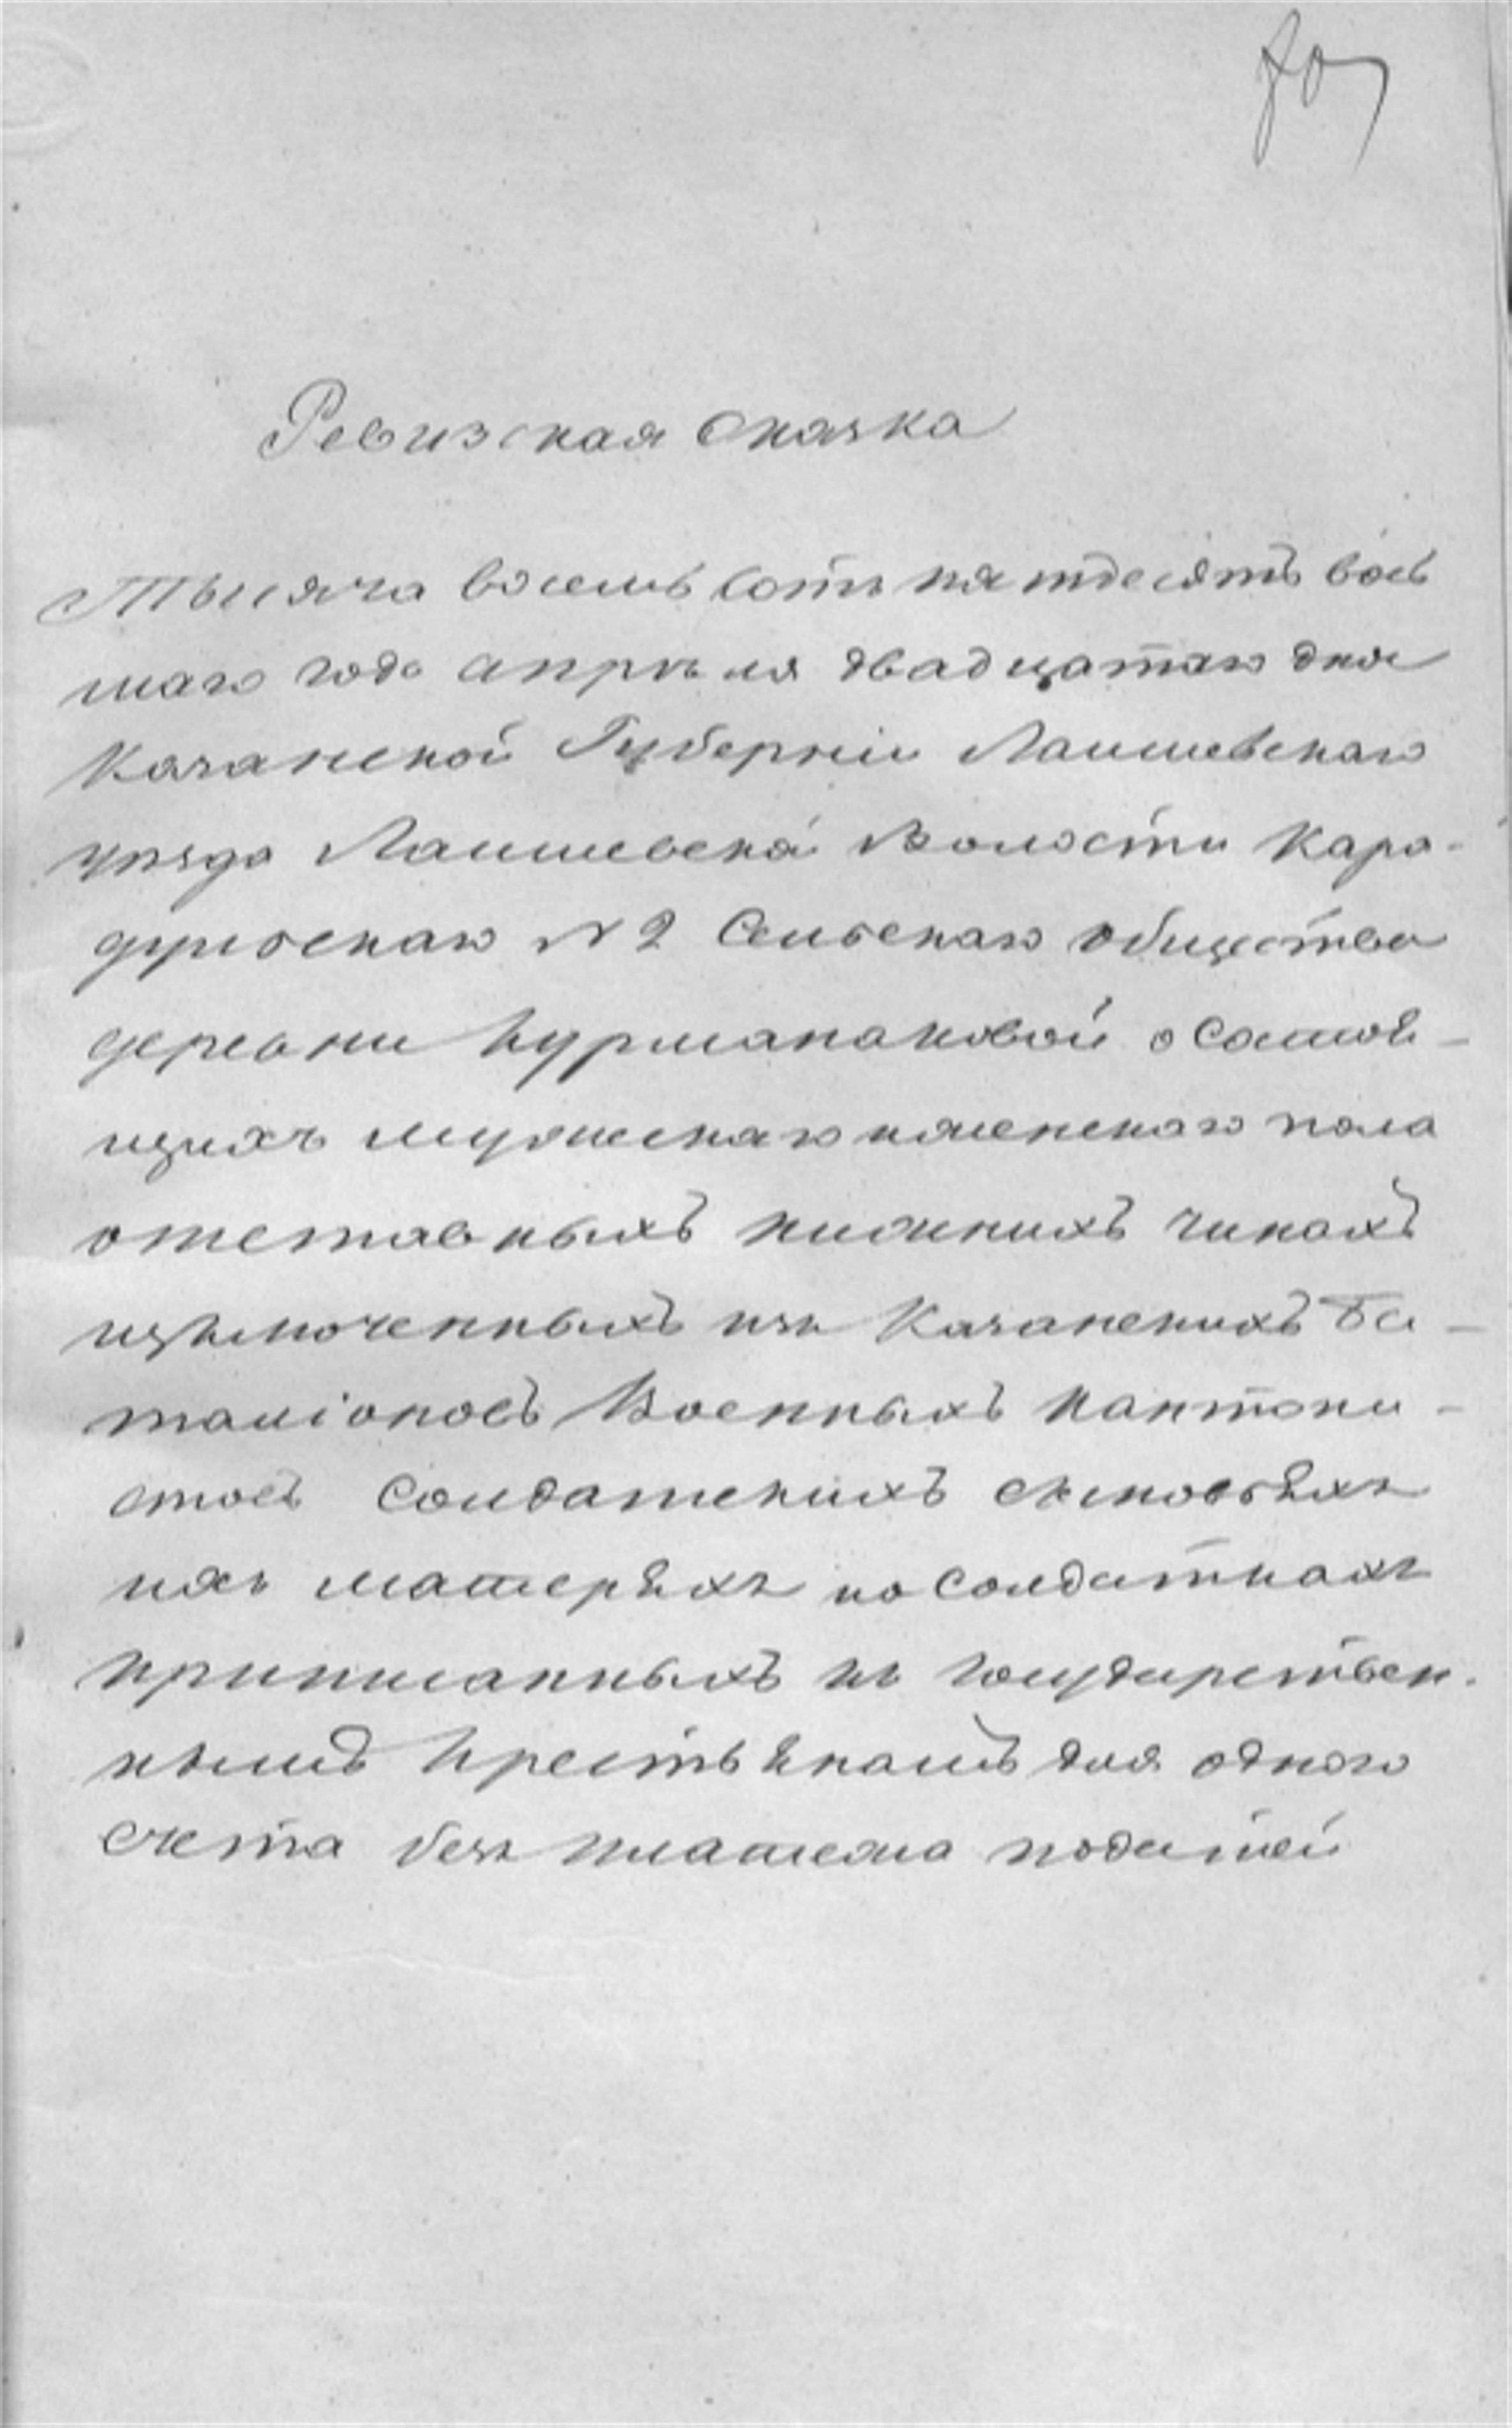 Ревизская Сказка
Тысяча восемь сотъ пятдесятъ вось
маго года апрѣля двадцатаго дня
Казанской Губерніи Лаишевскаго
уѣзда Лаишевской Волости Кара-
дулювскаго N 2 Сельскаго общества
деревни Курманаковой о состой-
щихъ мужескаго и женскаго пола
отставныхъ нижнихъ чинахъ
изключенныхъ изъ Казанскихъ Ба-
таліоновъ Военныхъ Кантони-
стовъ солдатскихъ сыновьяхъ
ихъ матеряхъ и о солдаткахъ
приписанныхъ къ государствен-
нымъ Крестьянамъ для одного
счета безъ платежа податей